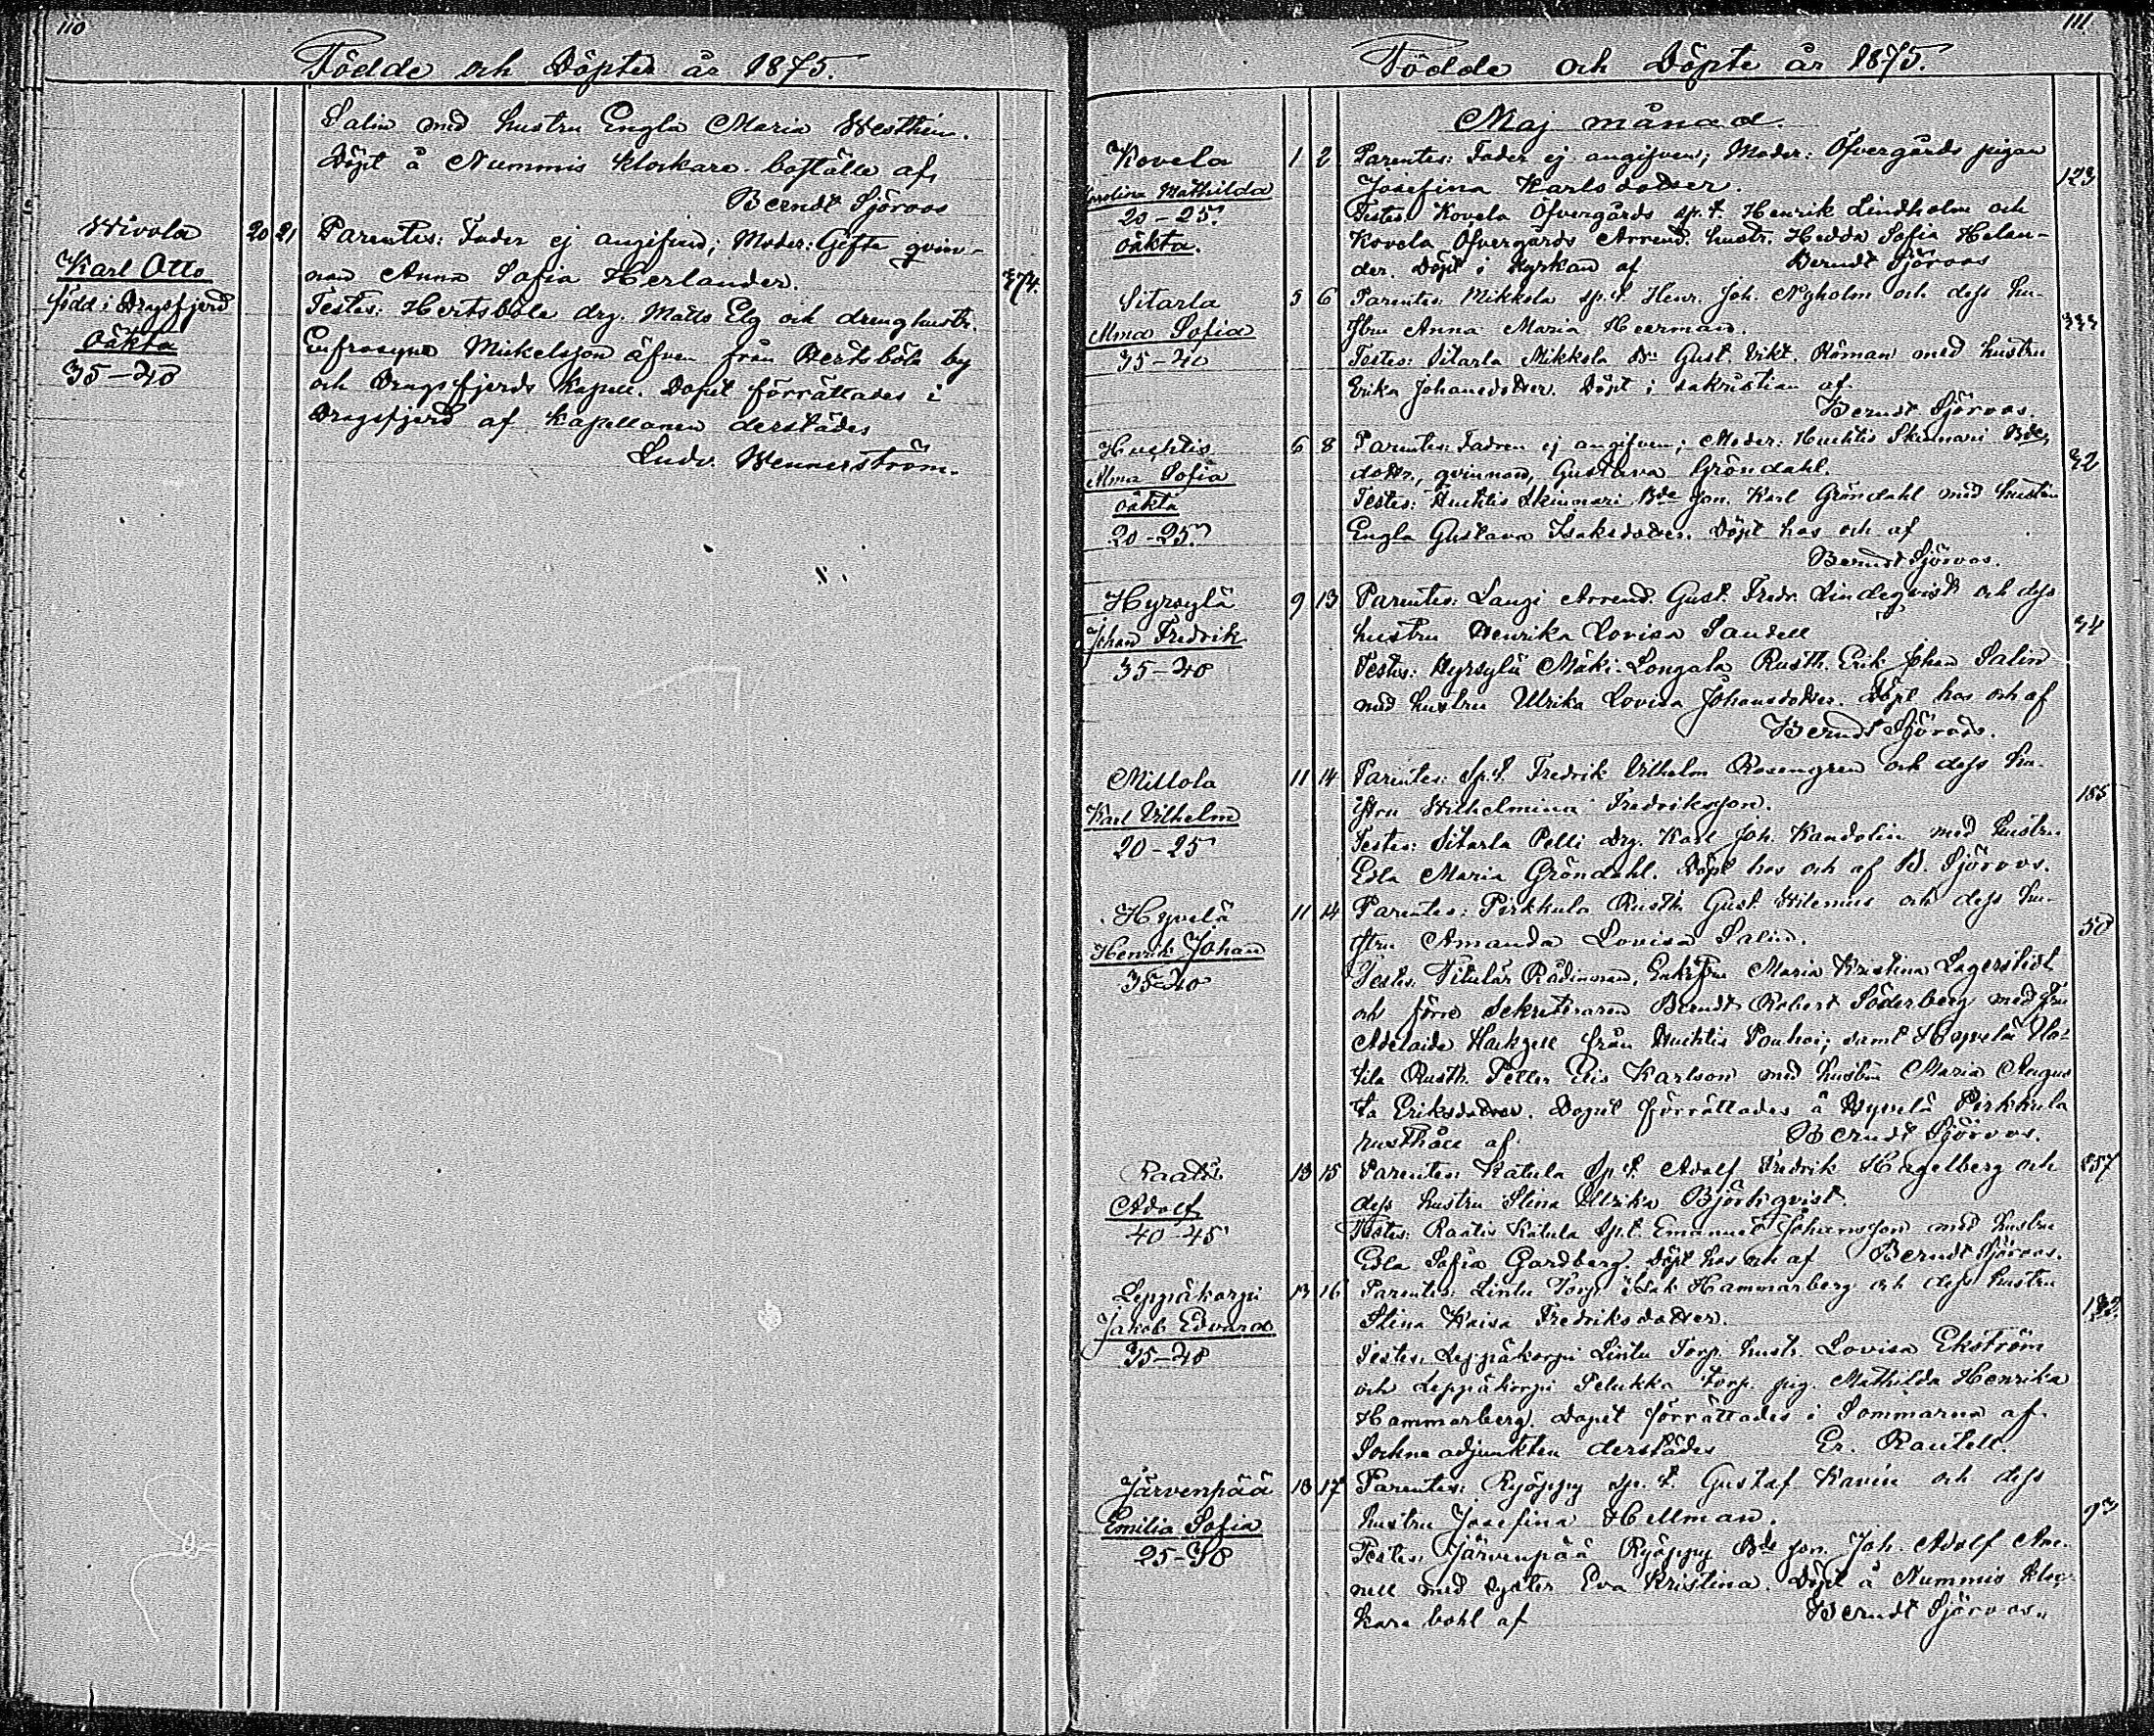 110
Födde och Döpte år 1875.
Salin med hustru Engla Maria Westhein.
Döpt å Nummis klockare-boställe af
Berndt Sjöroos
Wivola 20 21 Parentes: Fader ej angifven; Moder: Gifta qvin-
Karl Otto nan Anna Sofia Herlander. 374.
född i Dragsfjerd Testes: Hertsböle drg. Matts Elg och drenghustr.
oäkta Eufrosyne Mikelsson äfven från Hertsböle by
35-40 och Dragsfjerds Kapell. Dopet förrättades i
Dragsfjerd af Kapellanen derstädes
Ludv. Wennerström.
111
Födde och Döpte år 1875.
Maj månad.
Kovela 1 2 Parentes: Fader ej angifven; Moder: Öfvergårds pigan
Karolina Mathilda Josefina Karlsdotter. 123
20-25. Testes: Kovela Öfvergårds sp.t. Henrik Lindholm och
oäkta. Kovela Öfvergårds Arrend. hustr. Hedda Sofia Helan-
der. Döpt i kyrkan af Berndt Sjöroos
Sitarla 5 6 Parentes: Mikkola sp.t. Henr. Joh. Nyholm och dess hu-
Alma Sofia stru Anna Maria Heerman. 333
35-40 Testes: Sitarla Mikkola Bn Gust. Vikt. Röman med hustru
Erika Johansdotter. Döpt i sakristian af
Berndt Sjöroos.
Huhtis 6 8 Parentes: Fadren ej angifven; Moder: Huhtis Skinnari Bde
Alma Sofia dottr., qvinnan, Gustava Gröndahl. 32
oäkta Testes: Huhtis Skinnari Bde son. Karl Gröndahl med hustru
20-25. Engla Gustava Isaksdotter. Döpt hos och af
Berndt Sjöroos.
Hyrsylä 9 13 Parentes: Laugi Arrend. Gust. Fredr. Lindeqvist och dess
Johan Fredrik hustru Henrika Lovisa Sandell 34
35-40 Testes: Hyrsylä Mäki-Longala Rusth. Erik Johan Salin
med hustru Ulrika Lovisa Johansdotter. Döpt hos och af
Berndt Sjöroos.
Millola 11 14 Parentes: Sp.t. Fredrik Vilhelm Rosengren och dess hu-
Karl Vilhelm stru Wilhelmina Fredriksson. 155
20-25 Testes: Sitarla Pelli drg. Karl Joh. Kandolin med hustru
Edla Maria Gröndahl. Döpt hos och af B. Sjöroos.
Hyvelä 11 14 Parentes: Pirkkula Rusth. Gust. Wilenius och dess hu-
Henrik Johan stru Amanda Lovisa Salin. 50
35-40 Testes: Titulär Rådinnan, Enkefru Maria Kristina Lagerstedt
och förre Sekreteraren Berndt Robert Söderberg med fru
Adelaide Hackzell från Huhtis Pouhoi; samt Hyvelä Ula-
tila Rusth. Petter Elis Karlson med hustru Maria Augus
ta Eriksdotter. Dopet förrättades å Hyvelä Pirkkula
rusthåll af Berndt Sjöroos.
Raatis 13 15 Parentes: Katula Sp.t. Adolf Fredrik Hagelberg och 257
Adolf dess hustru Stina Ulrika Björkqvist.
40-45 Testes: Raatis Katula Sp.t. Emanuel Johansson med hustru
Edla Sofia Gardberg. Döpt hos och af Berndt Sjöroos.
Leppäkorpi 13 16 Parentes: Lintu Torp. Isak Hammarberg och dess hustru
Jakob Edvard Stina Kaisa Fredriksdotter.
35-40 Testes: Leppäkorpi Lintu Torp. hustr. Lovisa Ekström
och Leppäkorpi Pelukka torp. pig. Mathilda Henrika
Hammarberg. Dopet förrättades i Sommarnä af
Sockne adjunkten derstädes Er. Rautell.
Järvenpää 16 17 Parentes: Ryöppy sp.t. Gustaf Kavén och dess
Emilia Sofia hustru Josefina Hellman. 93
25-30 Testes: Järvenpää Ryöppy Bde son. Joh. Adolf An-
nell med syster Eva Kristina. Döpt å Nummis kloc-
kare bohl af Berndt Sjöroos.